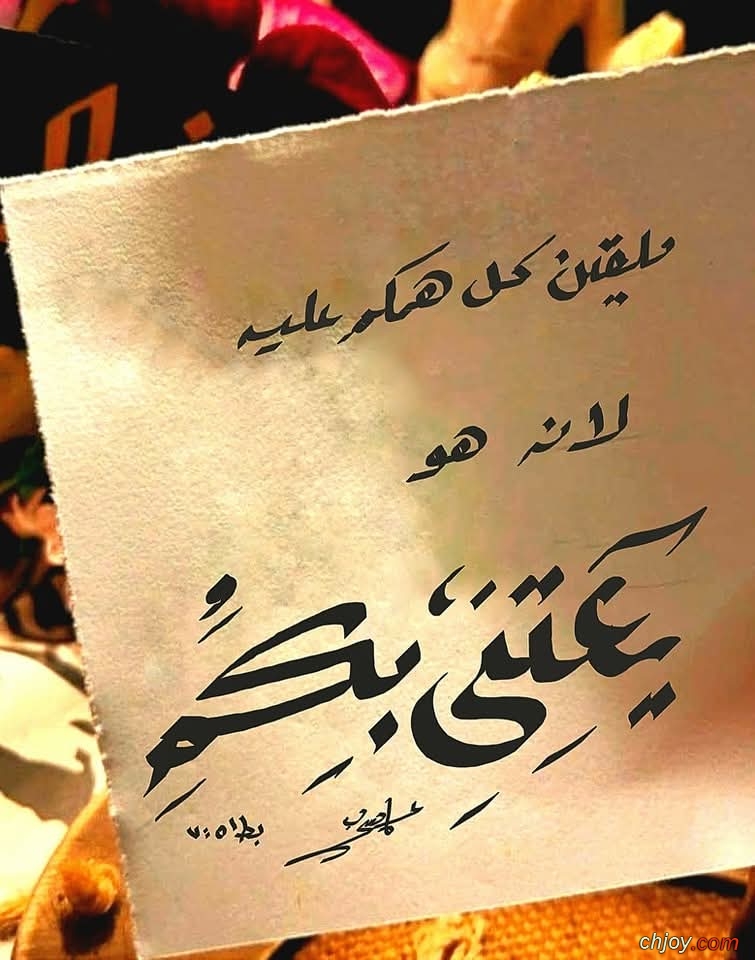 ملقين كل همكم عليه
لانه هو
يَعتَنِي بِكُمِ
بط١ ٥:٧
chjoy.com